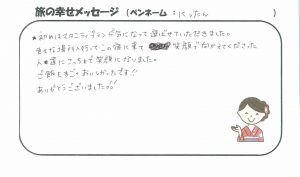 旅の幸せメッセージ (ペンネーム:にったん)
★初めはマロニティプランが気になって選ばせていただきました。
色々な場所へ行ってこの宿に来て 笑顔で向かえてくださった
人達にこっちまで笑顔になりました。
ご飯もすごくおいしかったです!!
ありがとうございました!!